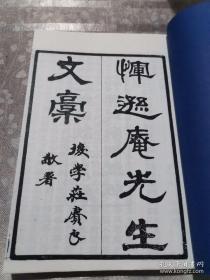 惲遜庵先生
文稾
後學莊賡良
敬署